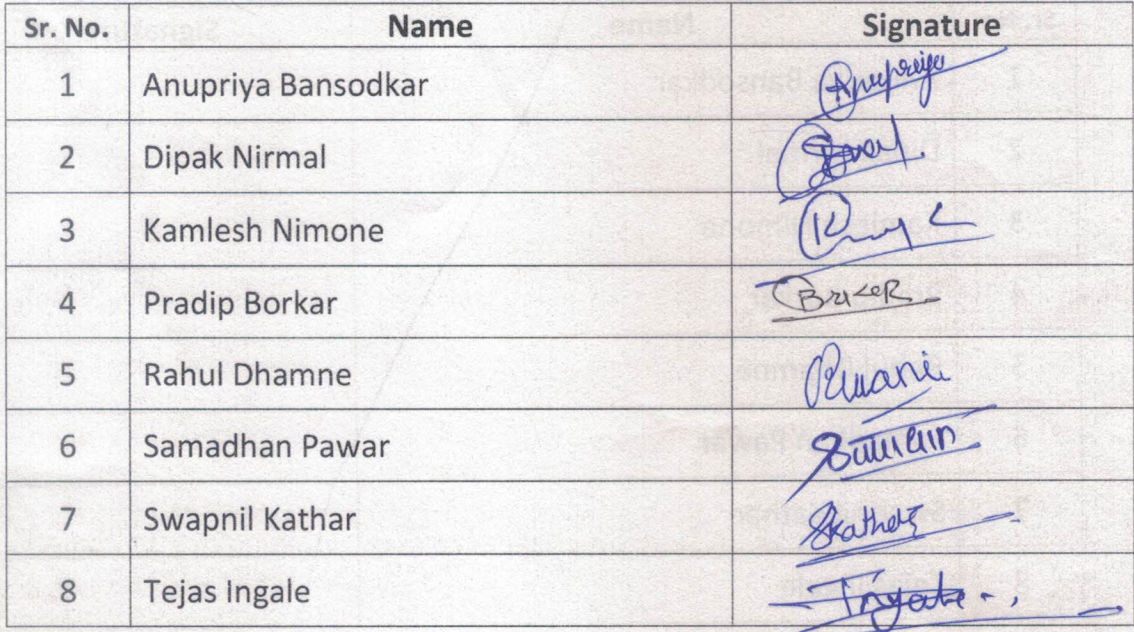 Sr. No. Name Signature
1 Anupriya Bansodkar Anupriya
2 Dipak Nirmal
3 Kamlesh Nimone
4 Pradip Borkar
5 Rahul Dhamne
6 Samadhan Pawar
7 Swapnil Kathar
8 Tejas Ingale Ingale